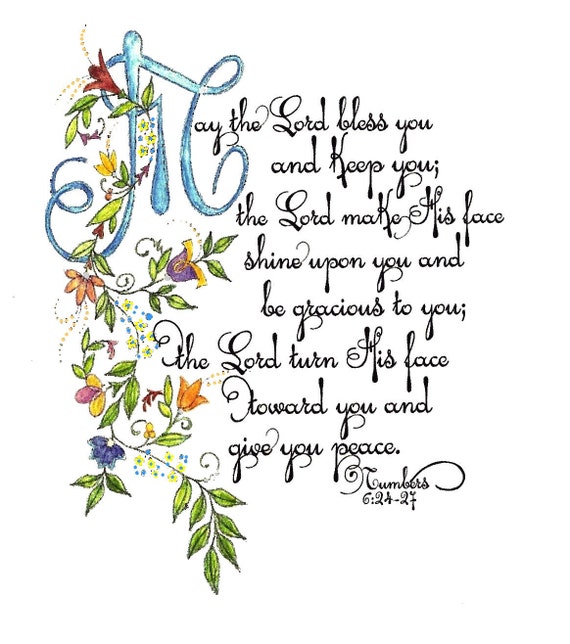 May the Lord bless you
and Keep you;
the Lord make His face
shine upon you and
be gracious to you;
the Lord turn His face
toward you and
give you peace.
Numbers
6:24-27